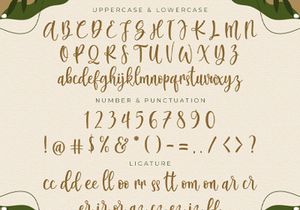 UPPERCASE & LOWERCASE
A B C D E F G H I J K L M N
O P Q R S T U V W X Y Z
abcdefghijklmnopqrstuvwxyz
NUMBER & PUNCTUATION
1 2 3 4 5 6 7 8 9 0
! @ # $ % & * ( ) - = . , / < > ?
LIGATURE
cc dd ee ll oo rr ss tt om on ar cr